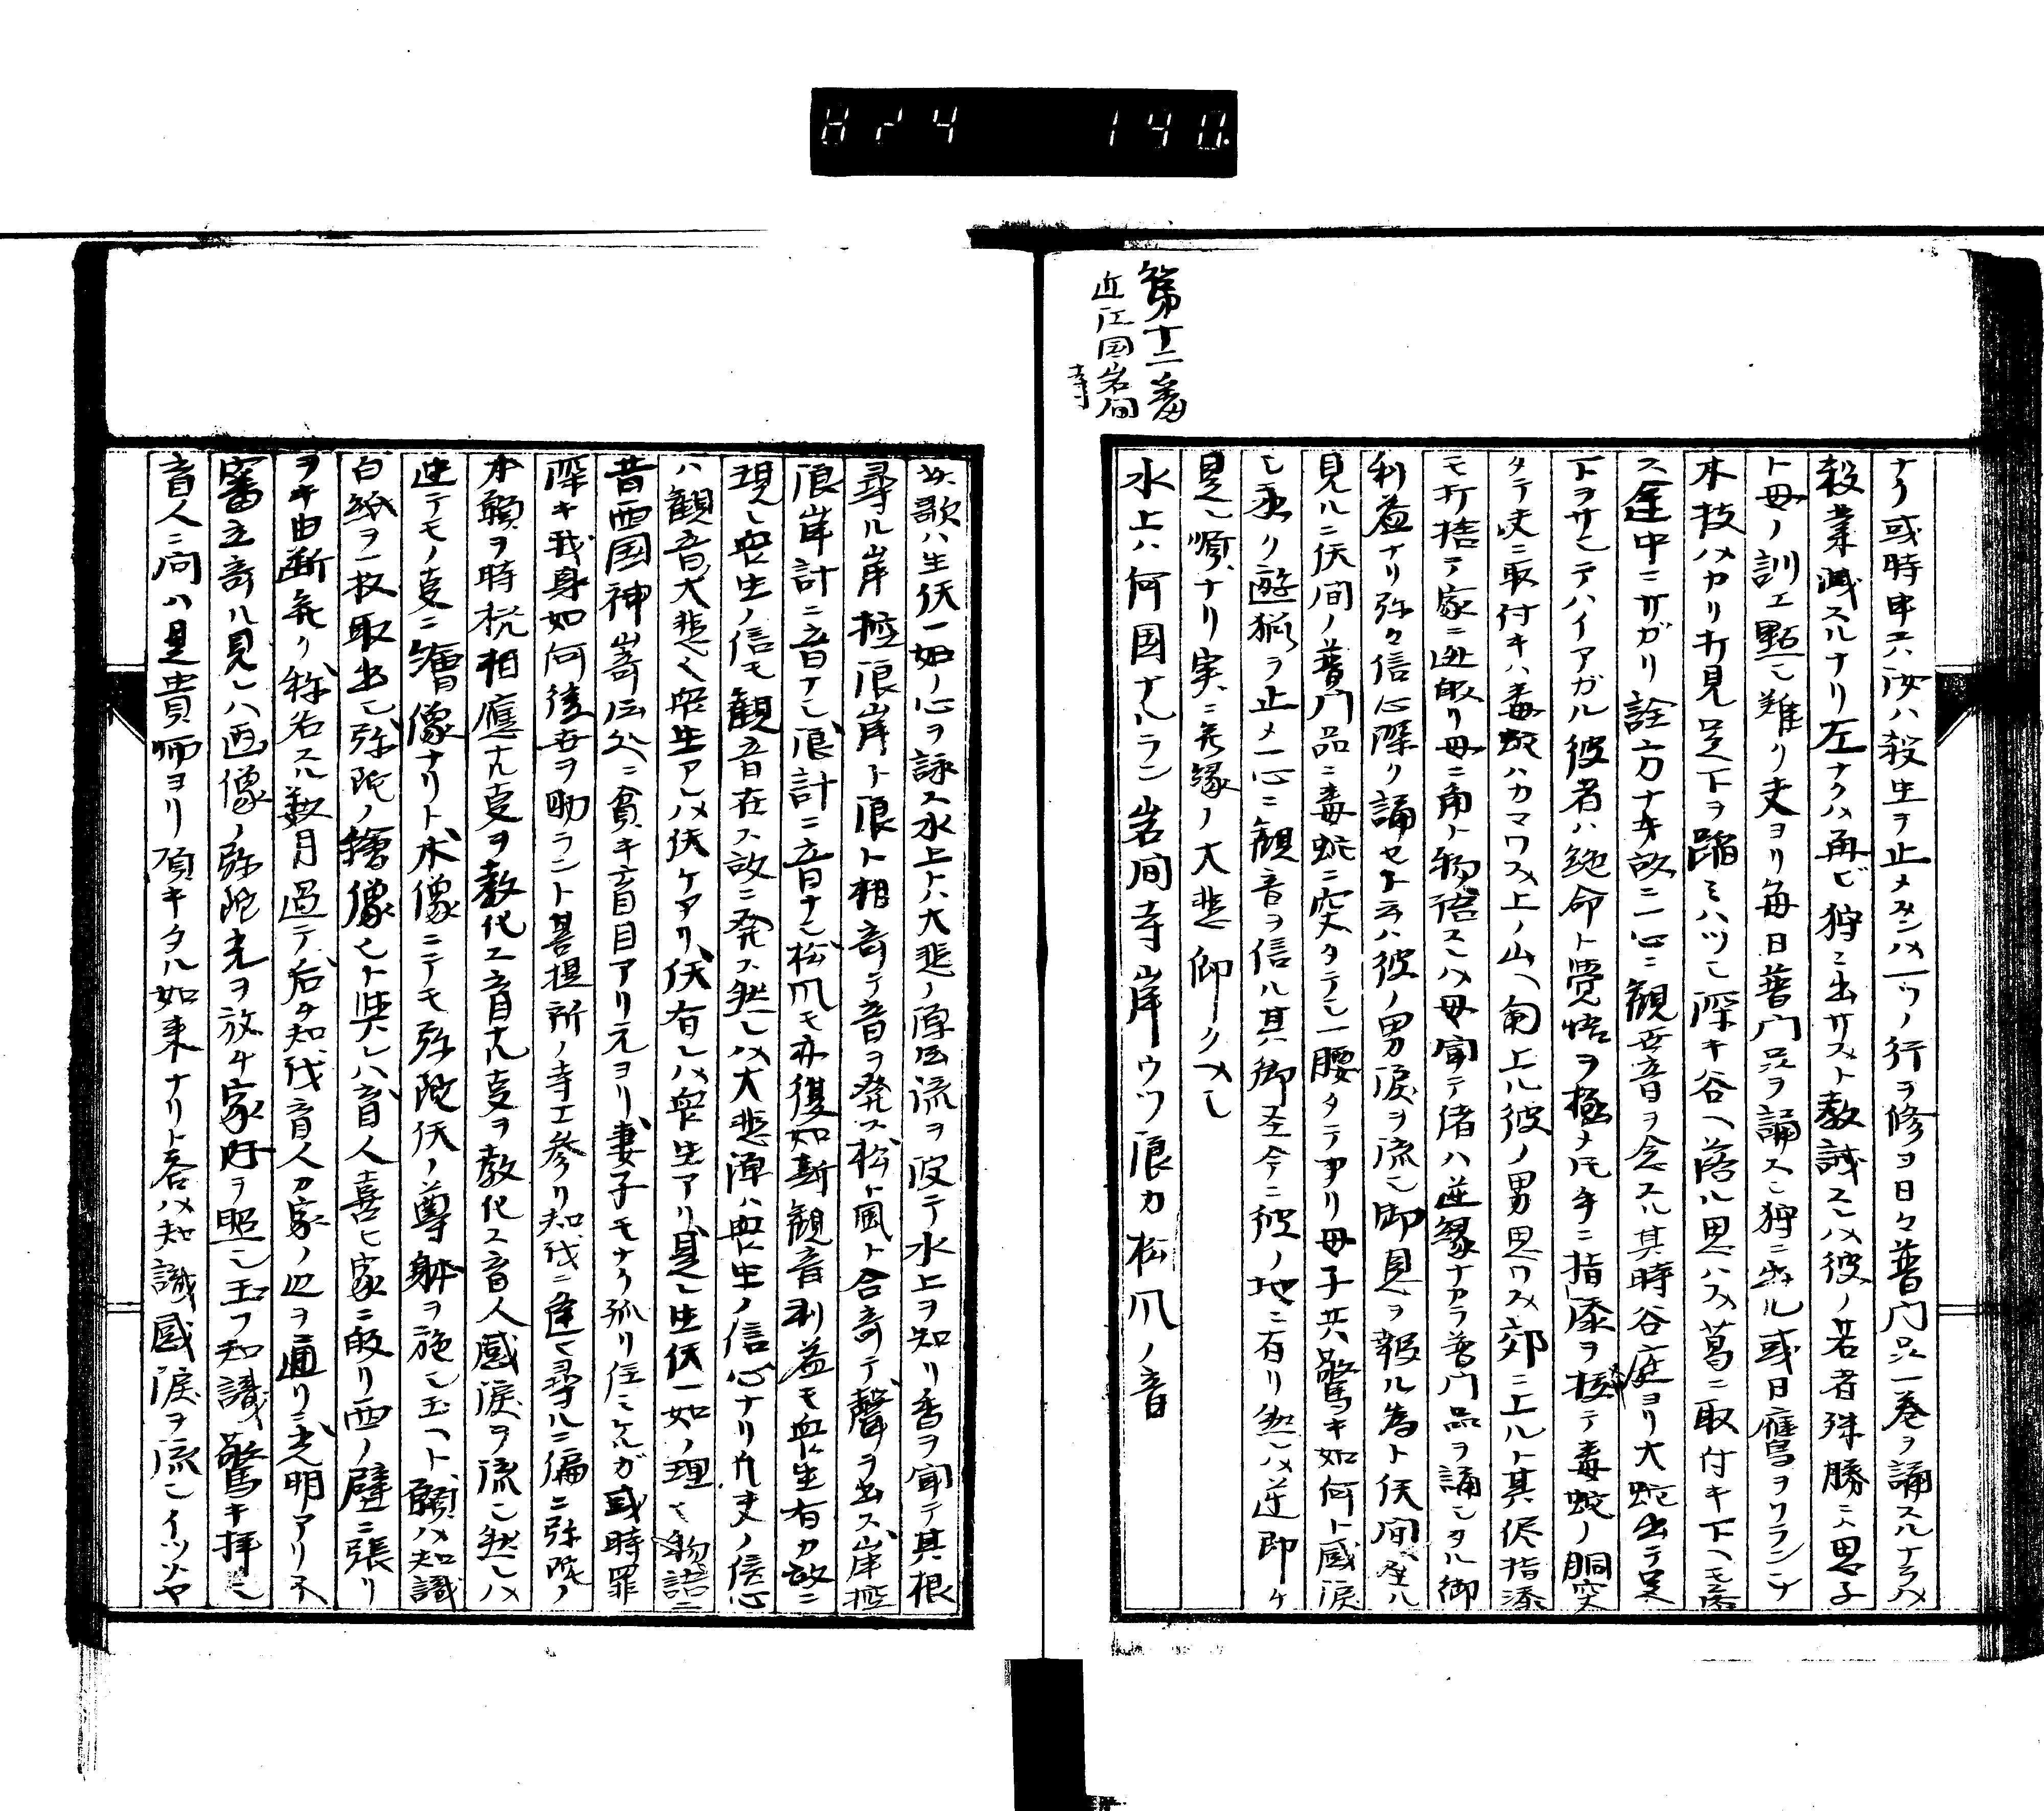 824 140
第十二番
近江国岩間
寺
ナク或時申エハ汝ハ殺生ヲ止メヌレハ一ツノ行ヲ修ヨ日々普門品一巻ヲ誦スルナラハ
殺業滅スルナリ左ナクハ再ビ狩ニ出サヌト教誡スレハ彼ノ若者殊勝ニ思子
ト母ノ訓エ黙シ難ク夫ヨリ毎日普門品ヲ誦スレ狩ニ出ル或日鷹ヲクランシテ
木枝ハカリ打見足下ヲ踏ミハツシ深キ谷ヘ落ル思ハス葛ニ取付キ下ヘモ落
ス途中ニサガリ詮方ナキ故ニ一心ニ観世音ヲ念スル其時谷底ヨリ大蛇出テ足
下ヲササヒテハイアガル彼者ハ絶命ト覚悟ヲ極メ片手ニ指添ヲ抜テ毒蛇ノ胴突
タテ夫ニ取付キハ毒蛇ハカマワス上ノ山ヘ匍上ル彼ノ男思ワス郊ニ上ルト其侭指添
モ打捨テ家ニ逃帰リ母ニ角ト物語スレハ母聞テ偖ハ逆縁ナカラ普門品ヲ誦シタル御
利益ナリ弥々信心深ク誦セト云ハ彼ノ男涙ヲ流シ御恩ヲ報ル為ト仏間ヘ座ル
見ルニ仏間ノ普門品ニ毒蛇ニ突タテシ一腰タテヲリ母子共驚キ如何ト感涙
シ永ク遊猟ヲ止メ一心ニ観音ヲ信ル其御圣今ニ彼ノ地ニ有リ然レハ逆即ケ
是レ順ナリ実ニ無縁ノ大悲仰クヘシ
水上ハ何国ナルラン岩間寺岸ウツ浪カ松風ノ音
此歌ハ生仏一如ノ心ヲ詠ス水上トハ大悲ノ源法流ヲ汲テ水上ヲ知リ香ヲ聞テ其根
尋ル岸極浪岸ト浪ト相寄テ音ヲ発ス松ト風ト合寄テ聲ラ出ス岸極
浪岸計ニ音ナシ浪計ニ音ナシ松風モ亦復如斯観音利益モ衆生有カ故ニ
現レ衆生ノ信モ観音在ス故ニ発ス然レハ大悲源ハ衆生ノ信心ナリ凡夫ノ信心
ハ観音大悲々衆生アレハ仏ケアリ仏有レハ衆生アリ是レ生仏一如ノ理々物語ニ
昔西国神嵜云処ニ貧キ盲目アリ元ヨリ妻子モナク孤リ住ミケルガ或時罪
深キ我身如何後世ヲ助ラント菩提所ノ寺エ参リ知識ニ逢レ尋ルニ偏ニ弥陀ノ
本願ヲ時機相應ナル㕝ヲ教化エ盲ナル㕝ヲ教化ス盲人感涙ヲ流シ然レハ
迚テモノ㕝ニ繪像ナリト木像ニテモ弥陀仏ノ尊躰ヲ施シ玉ヘト願ハ知識
白紙ヲ一枚取出シ弥陀ノ繪像也ト與レハ盲人喜ヒ家ニ皈リ西ノ壁ニ張リ
ヲキ由断無ク称名スル数月過テ后チ知識盲人カ家ノ辺ヲ通リシニ光明アリ不
審立寄ル見レハ画像ノ弥陀光ヲ放チ家内ヲ照シ玉フ知識驚キ拝シ
盲人ニ向ハ是貴師ヨリ頂キタル如来ナリト答ハ知識感涙ヲ流シイツソヤ